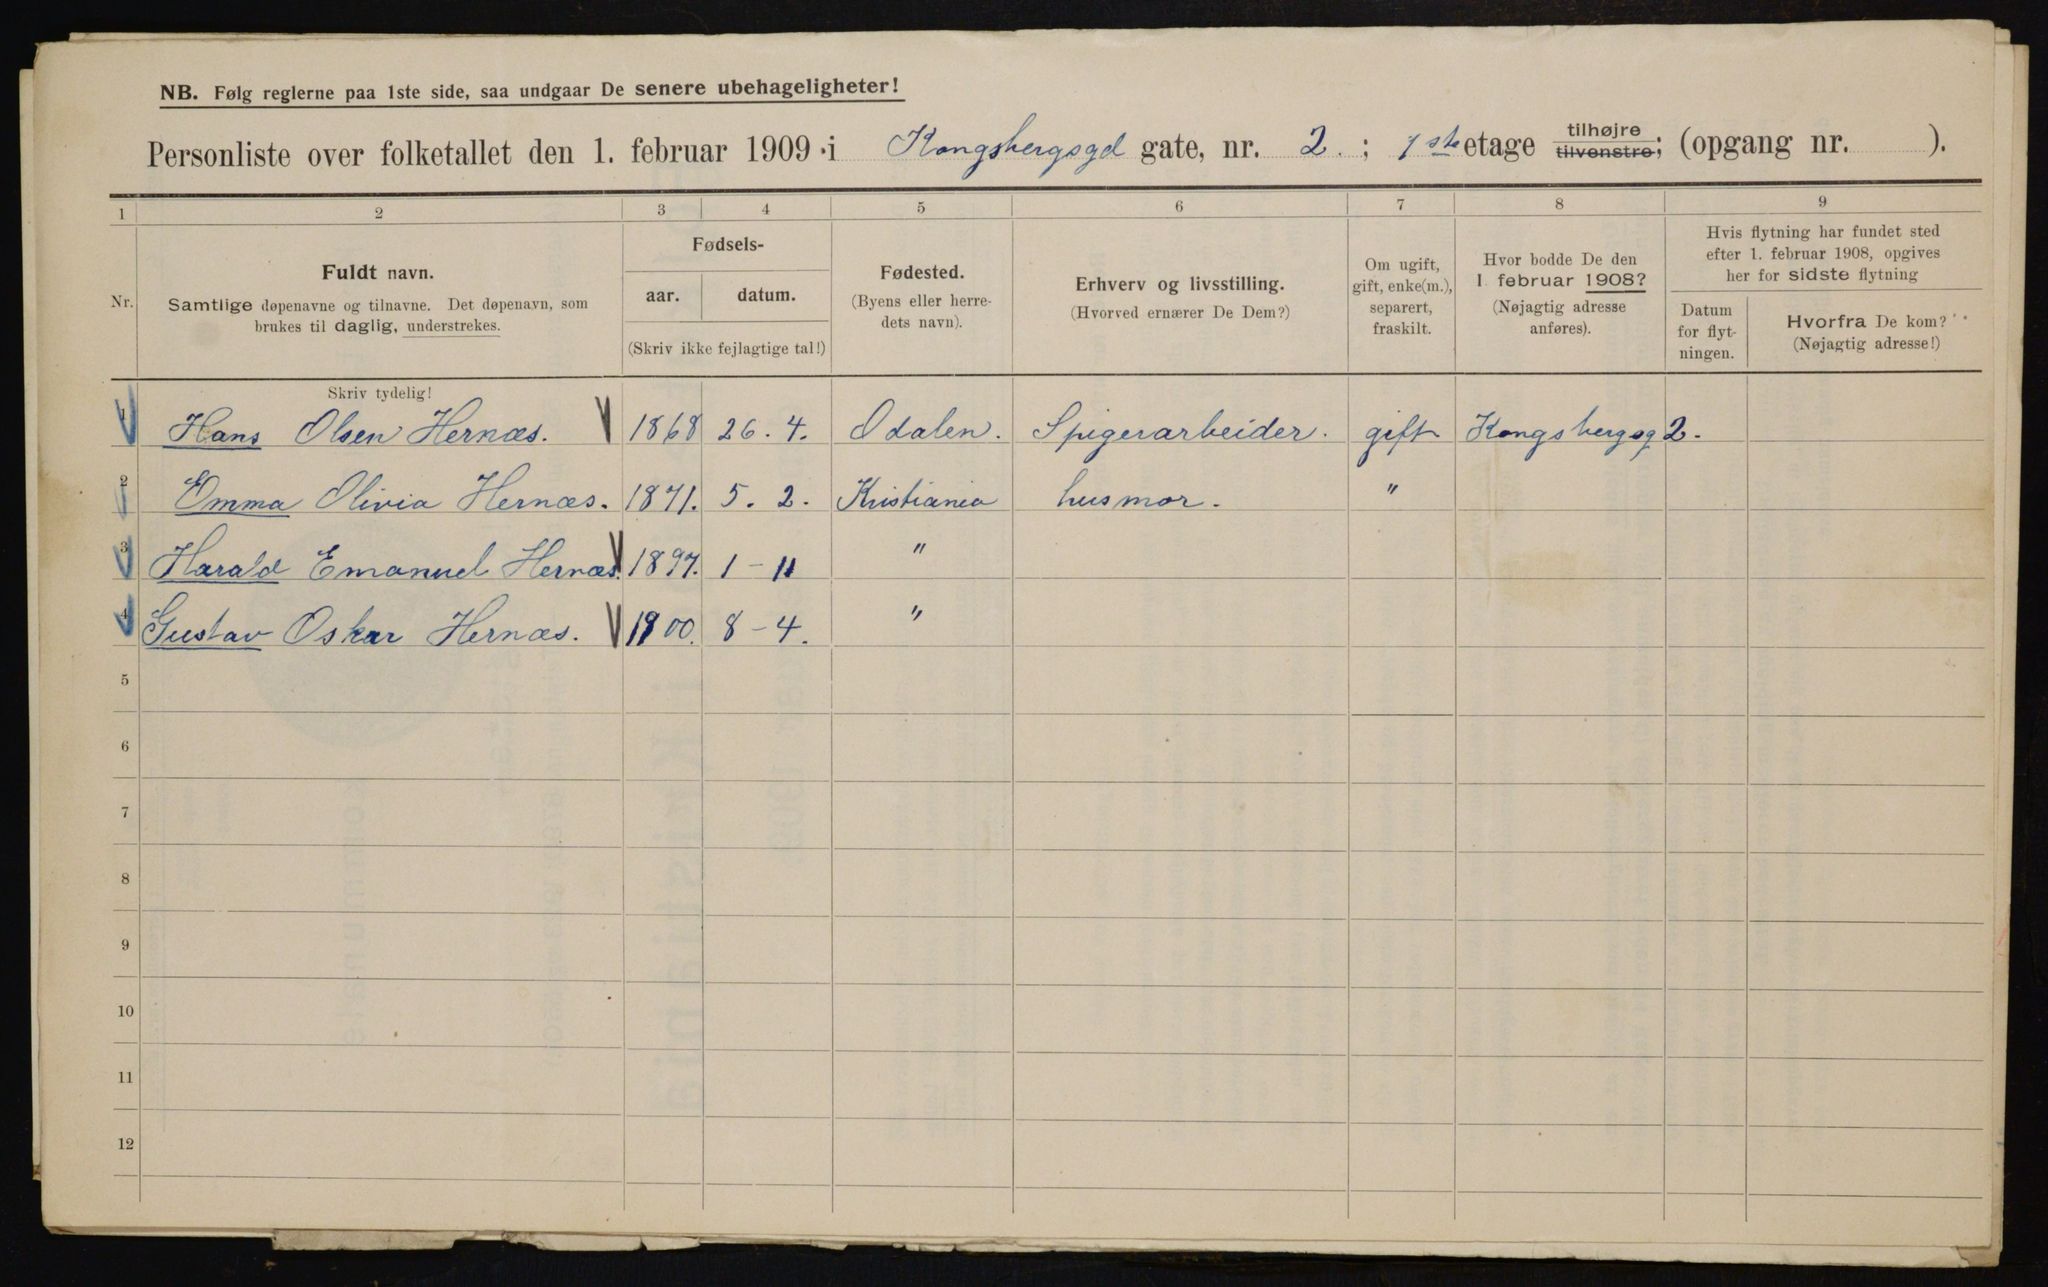 NB. Følg reglerne paa 1ste side, saa undgaar De senere ubehageligheter!
Personliste over folketallet den 1. februar 1909 i Kongsbergsgd gate, nr. 2. ; 1ste etage tilhøjre tilvenstre; (opgang nr. ).
1 2 3 4 5 6 7 8 9
Nr.
Fuldt navn.
Samtlige døpenavne og tilnavne. Det døpenavn, som
brukes til daglig, understrekes.
Fødsels-
aar. datum.
(Skriv ikke fejlagtige tal!)
Fødested.
(Byens eller herre-
dets navn).
Erhverv og livsstilling.
(Hvorved ernærer De Dem?)
Om ugift,
gift, enke(m.),
separert,
fraskilt.
Hvor bodde De den
1 februar 1908?
(Nøjagtig adresse
anføres).
Hvis flytning har fundet sted
efter 1. februar 1908, opgives
her for sidste flytning
Datum
for flyt-
ningen.
Hvorfra De kom?
(Nøjagtig adresse!)
Skriv tydelig!
1 Hans Olsen Hernæs. 1868 26. 4. Odalen. Spigerarbeider. gift Kongsbergsg 2.
2 Emma Olivia Hernæs. 1871. 5. 2. Kristiania husmor. "
3 Harald Emanuel Hernæs. 1897. 1 - 11 "
4 Gustav Oskar Hernæs. 1900. 8 - 4. "
5
6
7
8
9
10
11
12